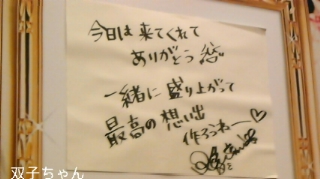 今日は来てくれて
ありがとう
一緒に盛り上がって
最高の想い出
作ろうねー♡
双子ちゃん